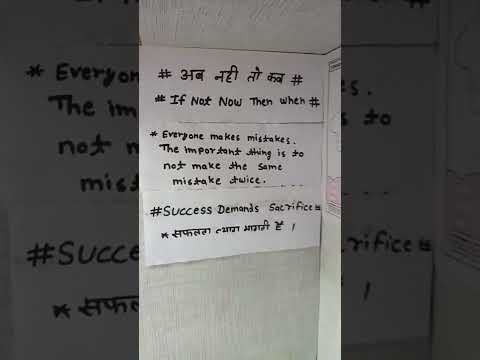 # अब नही तो कब #
# If Not Now Then When #
* Everyone makes mistakes.
The important thing is to
not make the same
mistake twice.
#Success Demands Sacrifice#
* सफलता त्याग मागती है ।